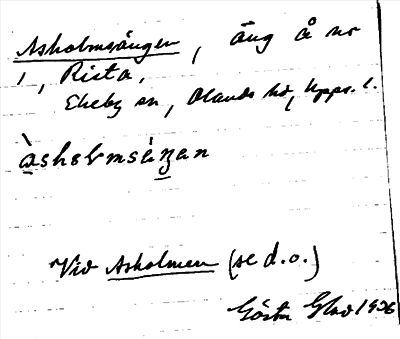 Asholmsängen, äng å nr
1, Rista,
Ekeby sn, Olands hd, Upps. l.
àsholmsàŋan
Vid Asholmen (se d.o.)
Gösta 1936